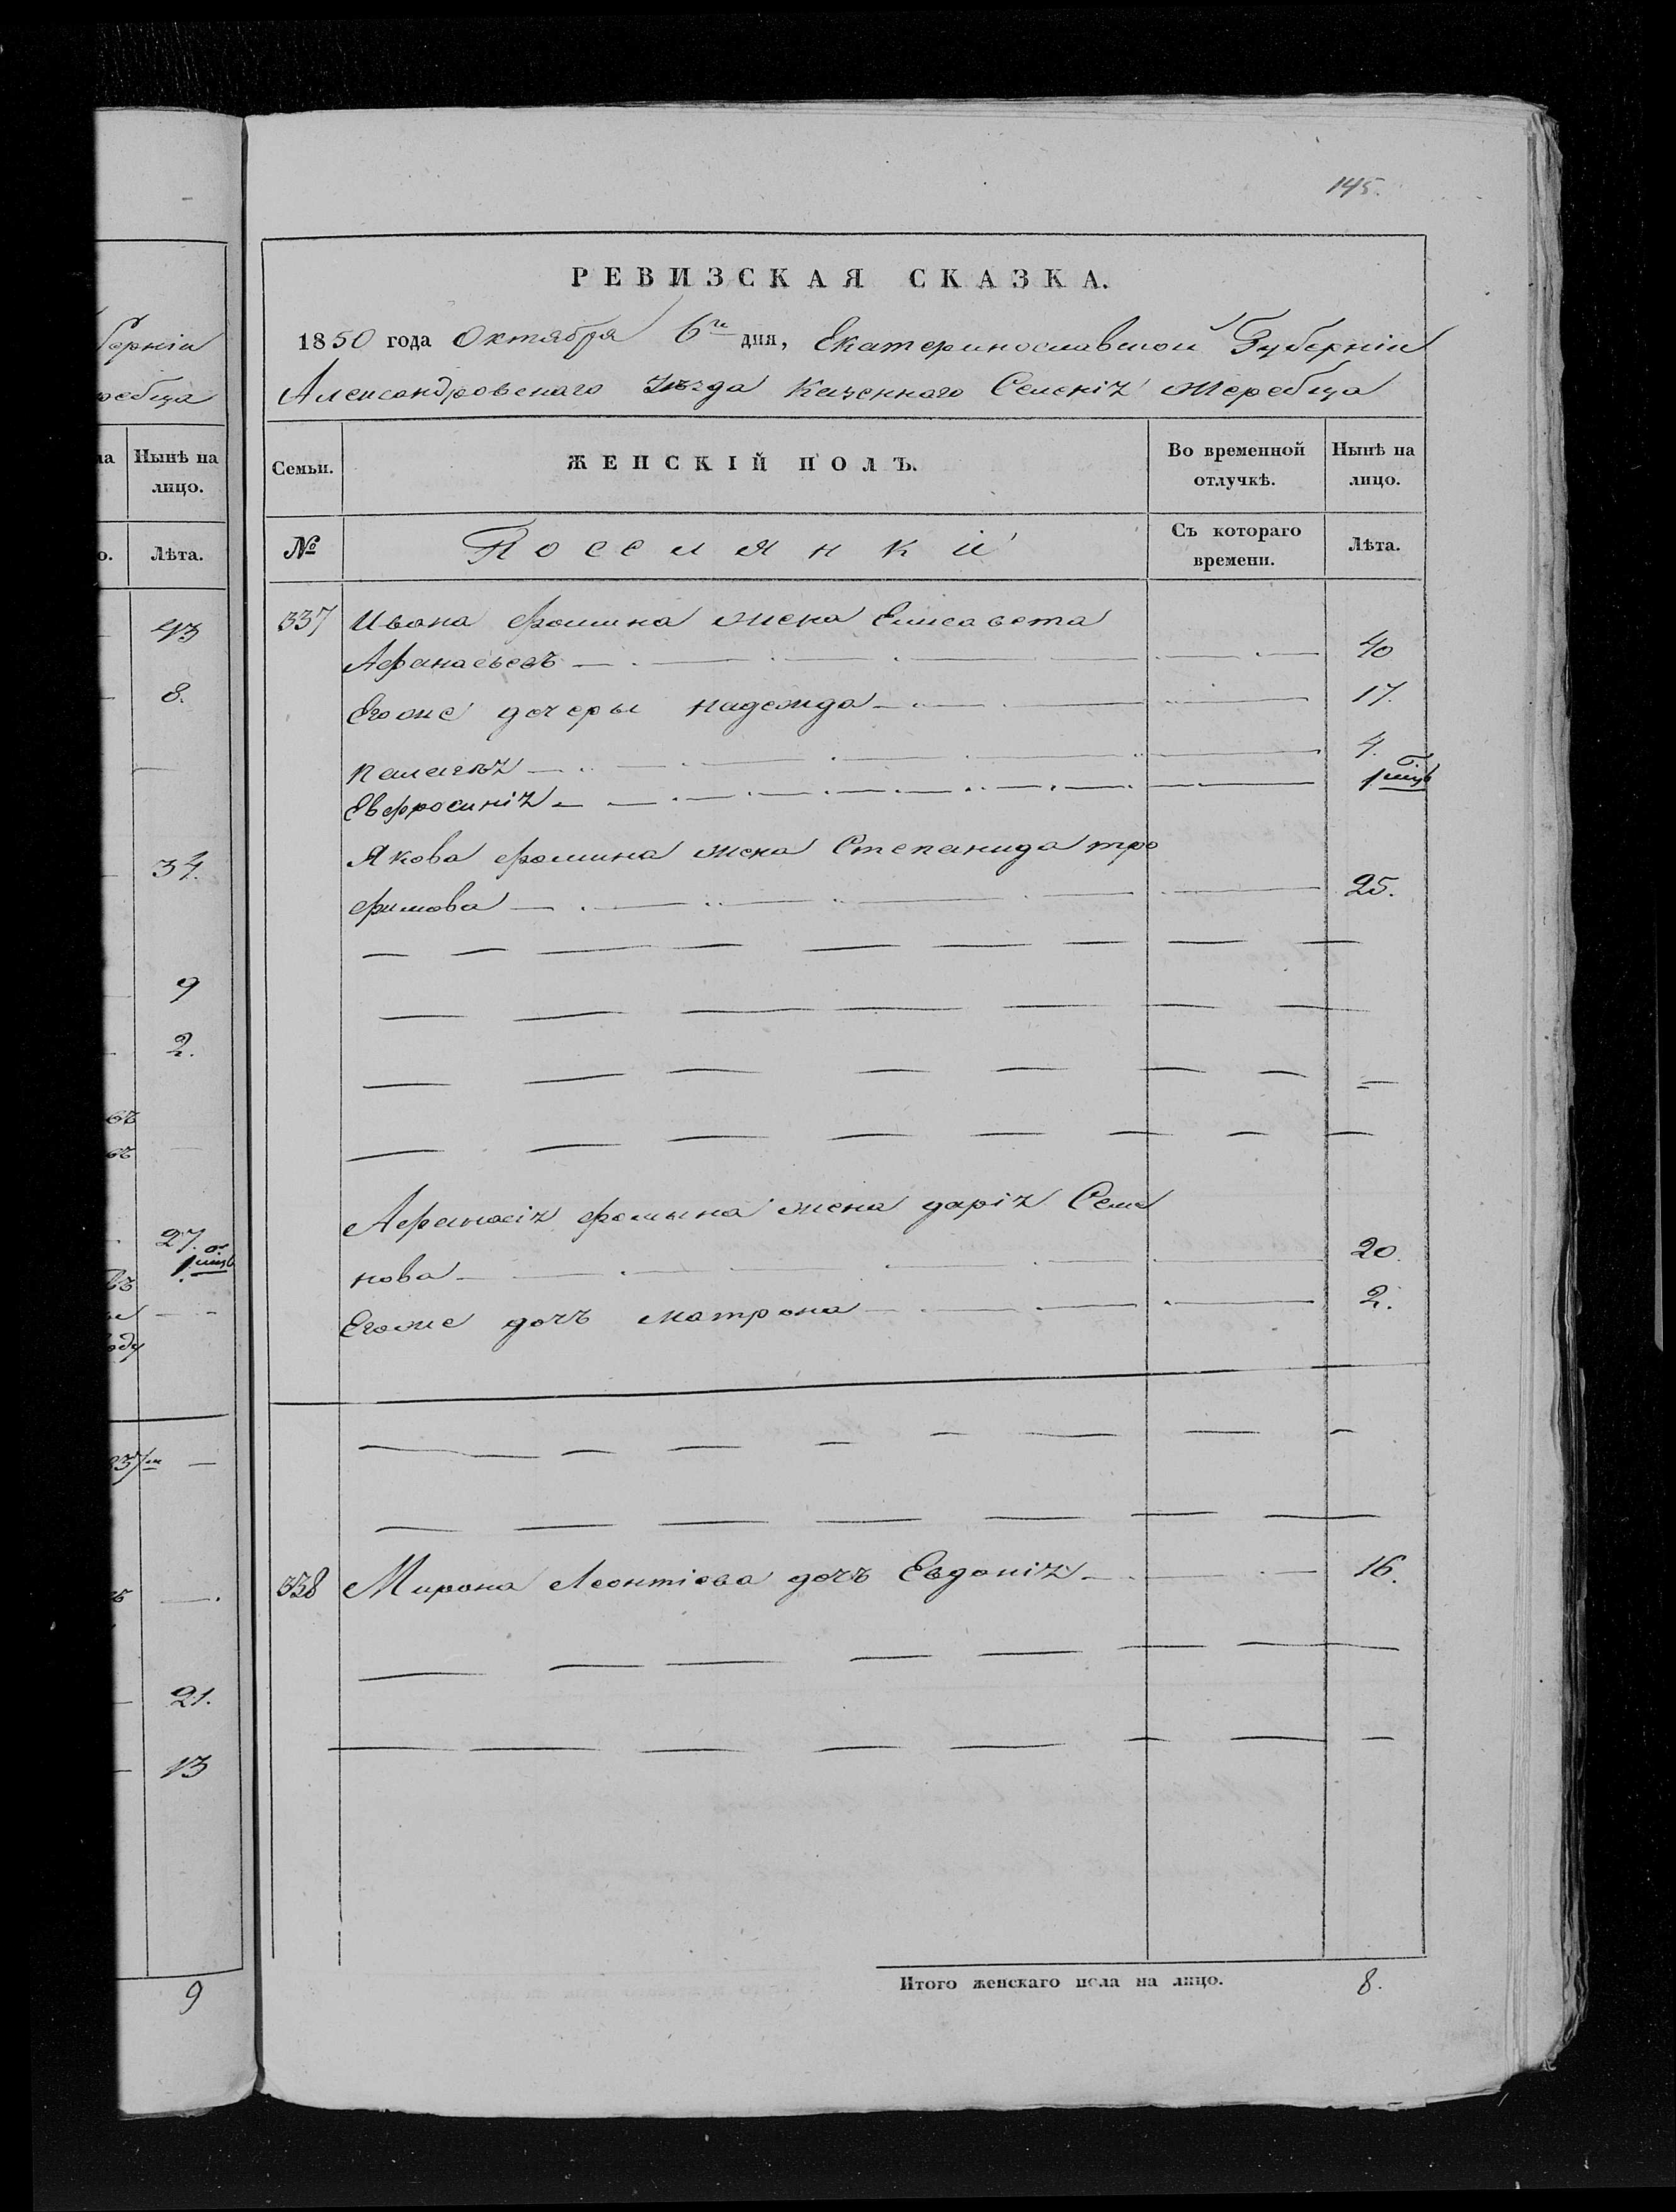 145.
РЕВИЗСКАЯ СКАЗКА.
1850 года Октября 6го дня, Екатеринославской Губерніи
Александровскаго Уѣзда Казеннаго Селенія Жеребца
Семьи.
ЖЕНСКІЙ ПОЛЪ.
Во временной отлучкѣ.
Нынѣ на лицо.
№
Поселянки
Съ котораго времени.
Лѣта.
337 Ивана Фомина жена Елисавета
Афанасьевъ 40
Егоже дочеры Надежда 17.
Палагѣя 4.
Евфросинія 1
Якова Фомина жена Степанида тро
фимова 25.
Афанасія Фомына жена дарія Семе
нова 20.
Егоже дочъ Матрона 2.
338 Мирона Леонтіева дочъ Евдокія 16.
Итого женскаго пола на лицо. 8.
берніи
ребца
на
Нынѣ на лицо.
о.
Лѣта.
43
8.
34.
9
2.
27.
1
оду
21.
13
9